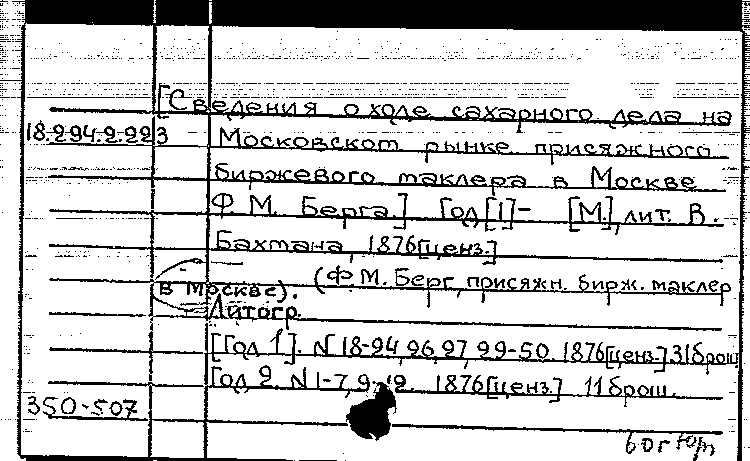 [Сведения о ходе сахарного дела на
18.294.2.223 Московском рынке присяжного
биржевого маклера в Москве
Ф. М. Берга.] Год [1]- [М.], лит. В.
Бахмана, 1876[ценз.]
(Ф.М. Берг, присяжн. бирж. маклер
в Москве).
Литогр.
[Год 1]. N 18-24, 26, 27, 29-50. 1876[ценз.] 31 брош
Год 2. N 1-7, 9-12. 1876[ценз.] 11 брош.
350-507